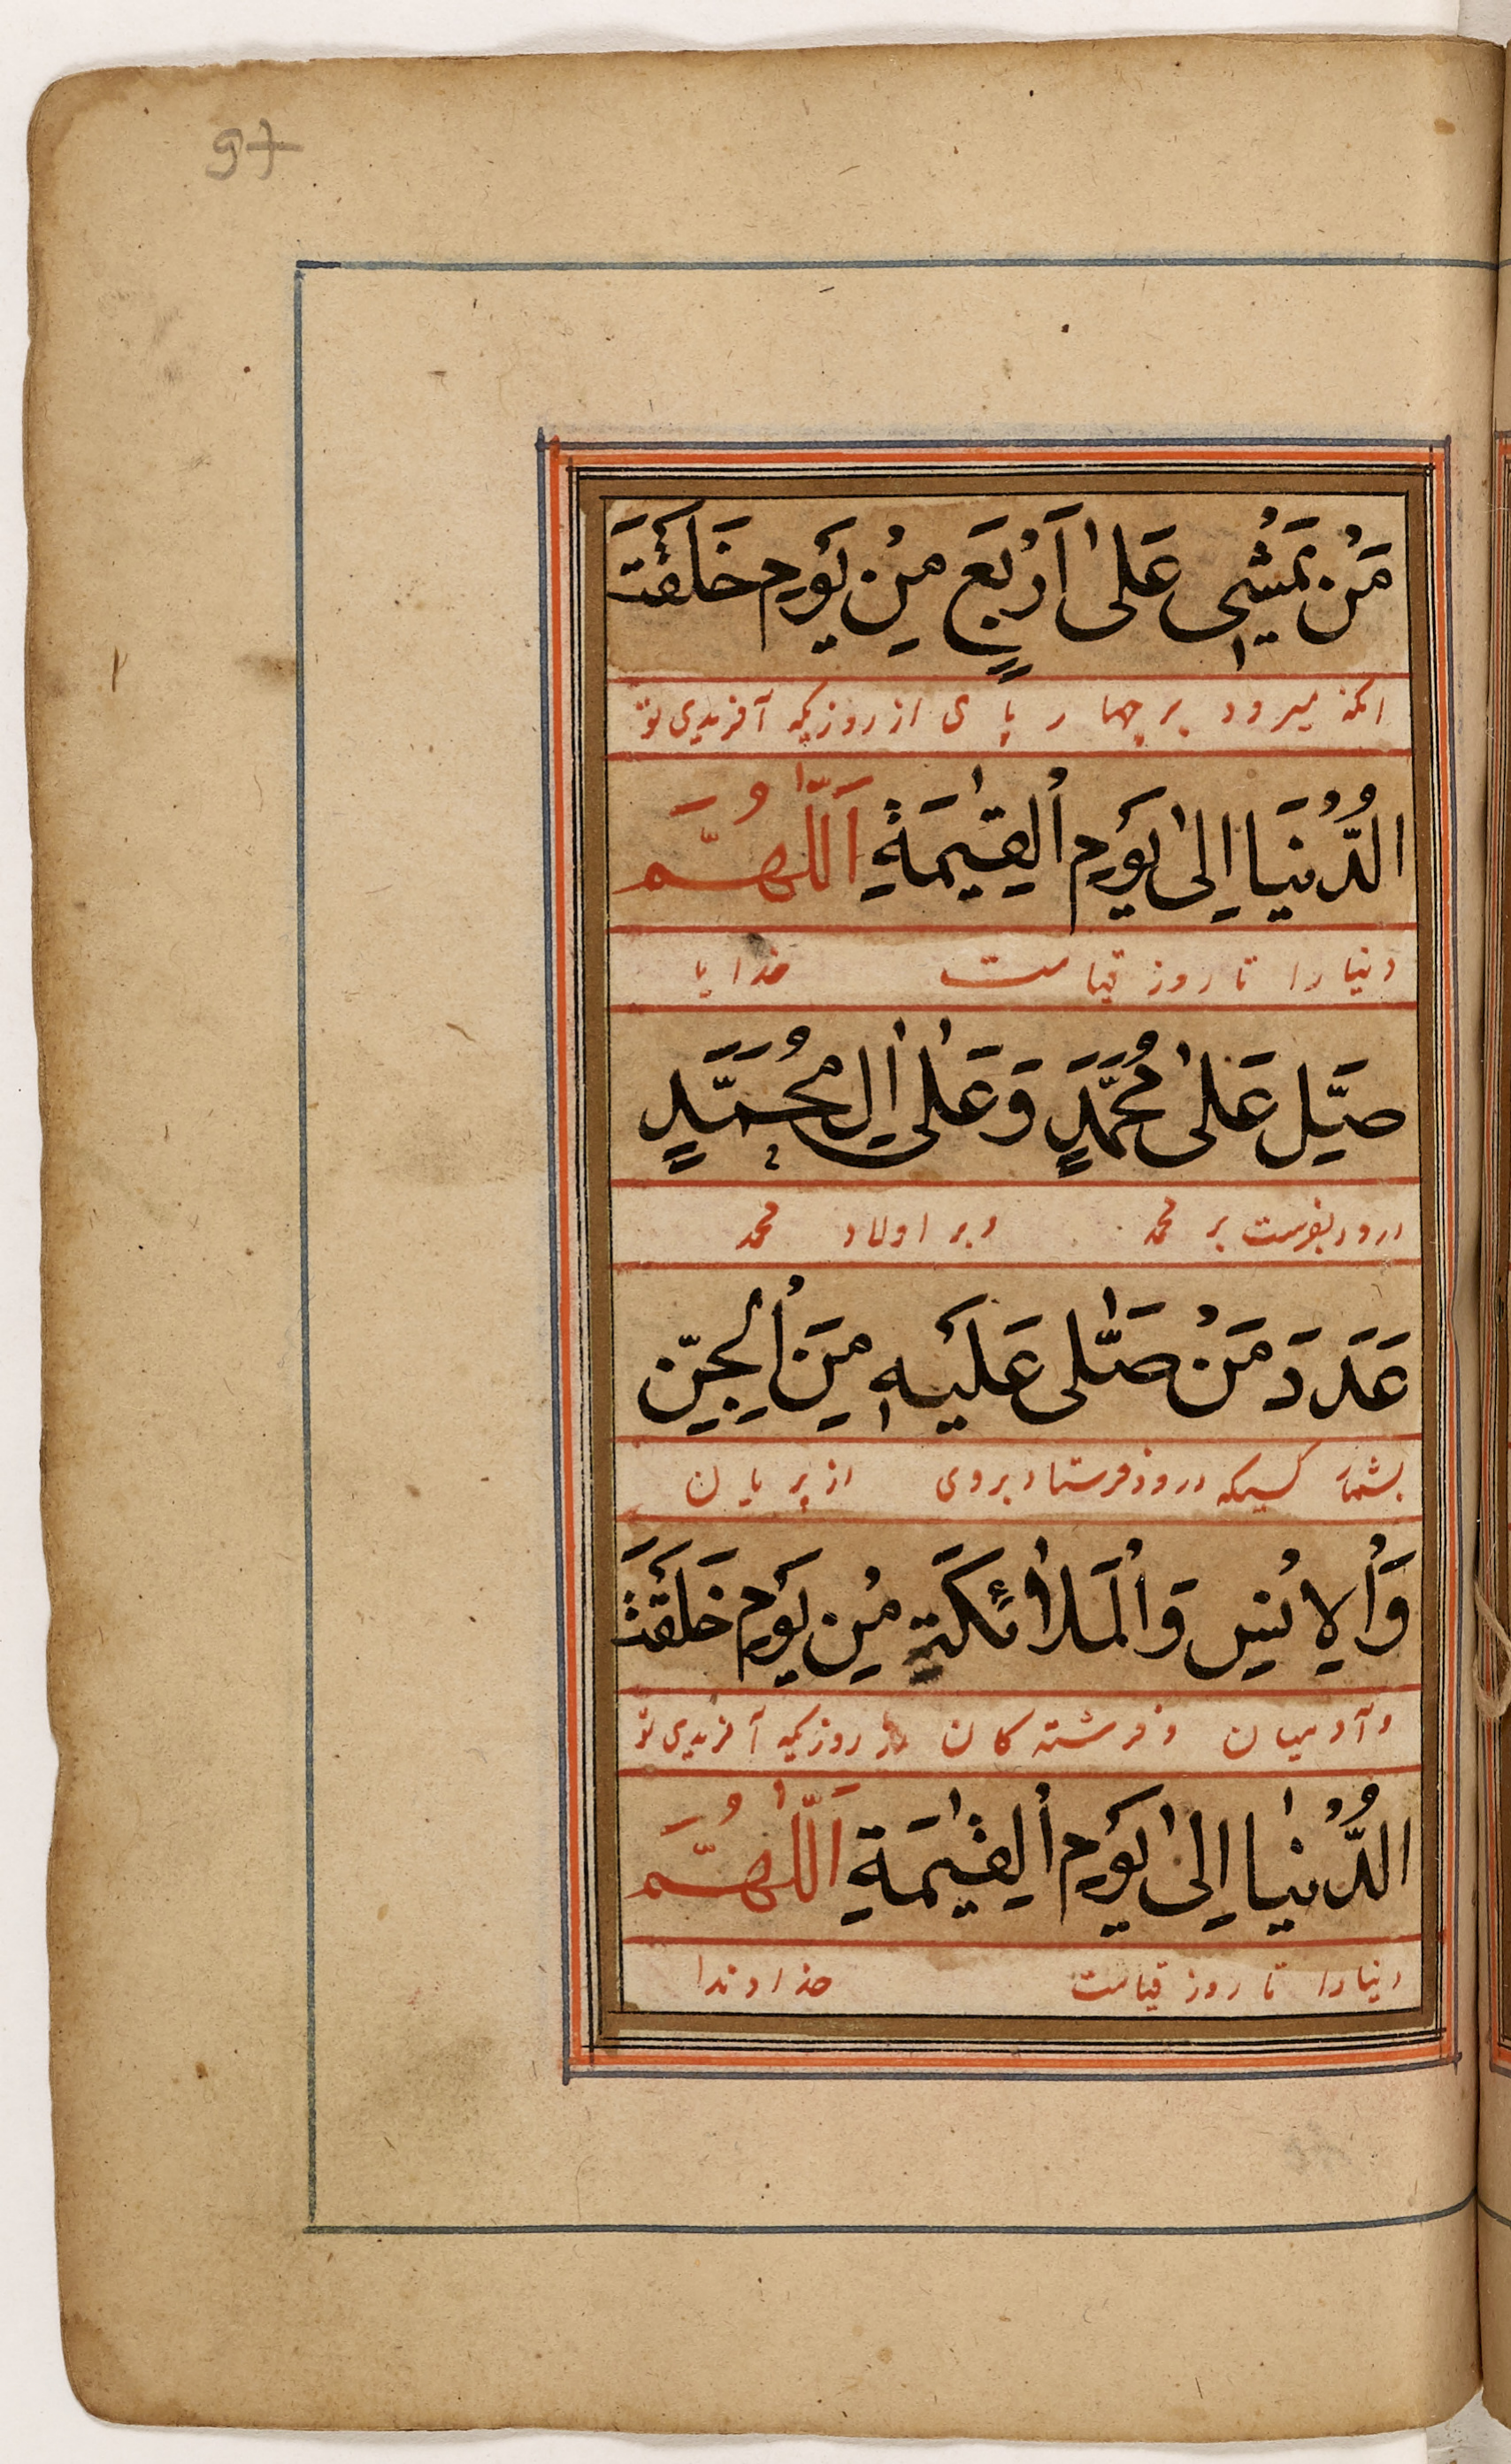 97
مَنْ يَمْشِي عَلىٰ اَرْبَعٍ مِنْ يَوْمِ خَلَقْتَ
انکه میرود بر چهار پای از روزیکه آفریدی تو
الدُّنْيَا اِلىٰ يَوْمِ الْقِيٰمَةِ اَللّٰهُمَّ
دنیا را تا روز قیامت خدایا
صَلِّ عَلىٰ مُحَمَّدٍ وَعَلىٰ اٰلِ مُحَمَّدٍ
درود بفرست بر محمد و بر اولاد محمد
عَدَدَ مَنْ صَلّٰى عَلَيْهِ مِنَ الْجِنِّ
بشمار کسیکه درود فرستاد بروی از پریان
وَالْاِنْسِ وَالْمَلٰائِكَةِ مِنْ يَوْمِ خَلَقْتَ
و آدمیان و فرشته کان از روزیکه آفریدی تو
الدُّنْيٰا اِلىٰ يَوْمِ الْقِيٰمَةِ اَللّٰهُمَّ
دنیا را تا روز قیامت خداوندا